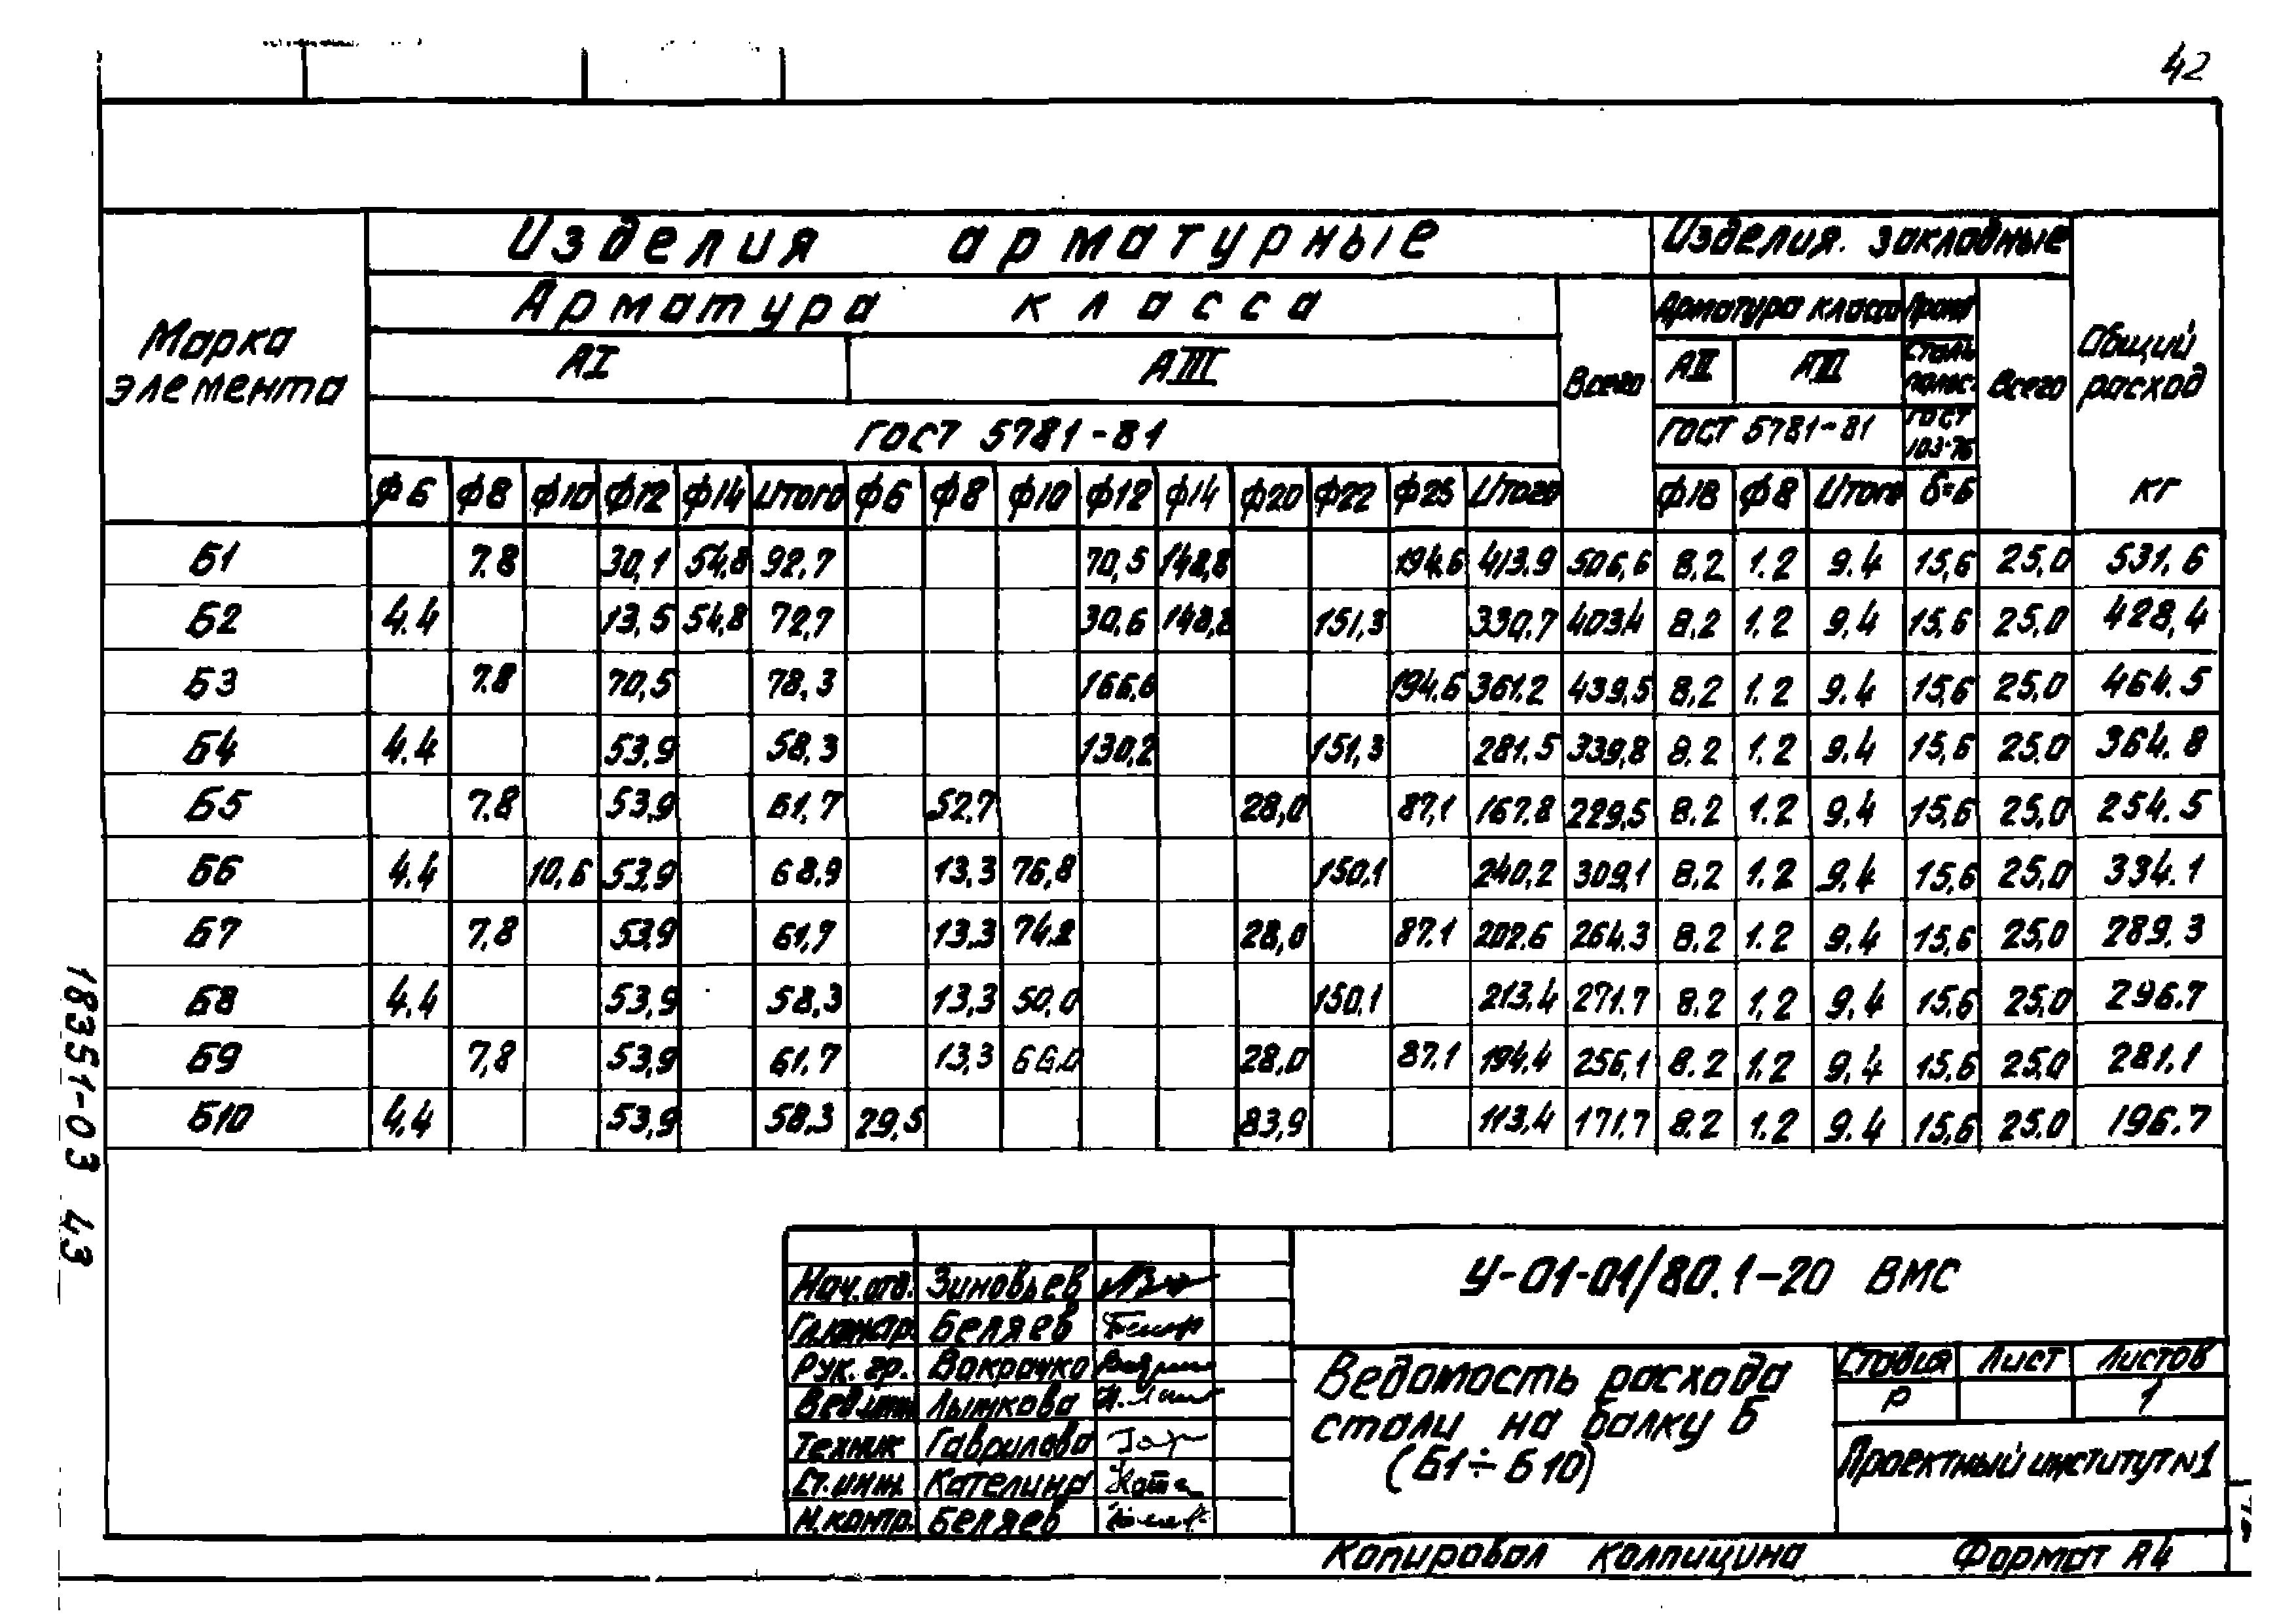 42
Изделия арматурные Изделия закладные
Арматура класса Арматура класса Прокат
Марка элемента АI АIII Всего АII АIII Сталь полос. Всего Общий расход
ГОСТ 5781-81 ГОСТ 5781-81 ГОСТ 103-76
ф6 ф8 ф10 ф12 ф14 Итого ф6 ф8 ф10 ф12 ф14 ф20 ф22 ф25 Итого ф18 ф8 Итого δ=6 кг
Б1 7.8 30,1 54,8 92,7 70,5 148,8 194.6 413.9 506,6 8.2 1.2 9.4 15,6 25,0 531.6
Б2 4.4 13,5 54,8 72,7 30,6 148,8 151,3 330.7 403.4 8.2 1.2 9.4 15,6 25,0 428,4
Б3 7.8 70,5 78,3 166,6 194.6 361.2 439,5 8,2 1.2 9.4 15,6 25,0 464.5
Б4 4.4 53,9 58,3 130,2 151,3 281.5 339,8 8.2 1.2 9.4 15,6 25.0 364.8
Б5 7.8 53,9 61,7 52,7 28,0 87,1 167.8 229,5 8.2 1.2 9.4 15,6 25,0 254.5
Б6 4.4 10,6 53,9 68.9 13,3 76,8 150,1 240,2 309,1 8,2 1.2 9.4 15,6 25,0 334.1
Б7 7,8 53,9 61,7 13.3 74.2 28,0 87.1 202.6 264.3 8.2 1.2 9.4 15,6 25,0 289.3
Б8 4.4 53,9 58,3 13,3 50,0 150,1 213.4 271.7 8.2 1.2 9.4 15,6 25,0 296.7
Б9 7,8 53,9 61.7 13,3 66.0 28,0 87.1 194.4 256,1 8.2 1.2 9.4 15,6 25,0 281.1
Б10 4,4 53,9 58,3 29,5 83,9 113,4 171.7 8.2 1.2 9.4 15,6 25.0 196.7
18351-03 43
У-01-01/80.1-20 ВМС
Нач.отд. Зиновьев
Гл.констр. Беляев
Рук. гр. Вакрачко
Вед.инж. Лыткова
Техник Гаврилова
Ст.инж. Кателина
Н.контр. Беляев
Ведомость расхода
стали на балку Б
(Б1÷Б10)
Стадия Лист Листов
Р 1
Проектный институт N1
Копировал Колпицина Формат А4